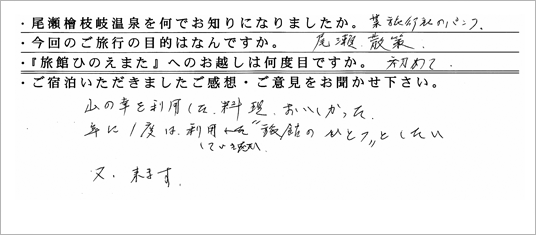 ・尾瀬檜枝岐温泉を何でお知りになりましたか。某旅行社のパンフ
・今回のご旅行の目的はなんですか。 尾瀬 散策.
・『旅館ひのえまた』へのお越しは何度目ですか。 初めて.
・ご宿泊いただきましたご感想・ご意見をお聞かせ下さい。
山の幸を利用した料理. おいしかった.
年に1度は、利用 "旅館のひとつ"としたい
又、来ます.